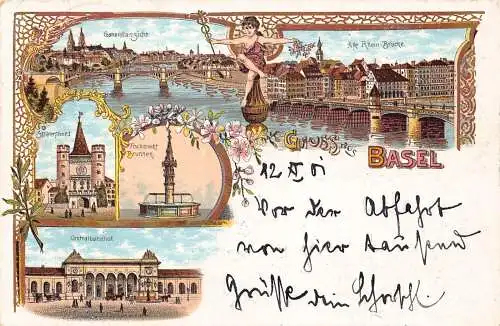 Generalansicht
Alte Rhein-Brücke.
Gruss aus
BASEL
Spalenthor
Fischmarkt
Brunnen
Centralbahnhof
12 IV 01
Vor der Abfahrt
von hier tausend
Grüsse dein